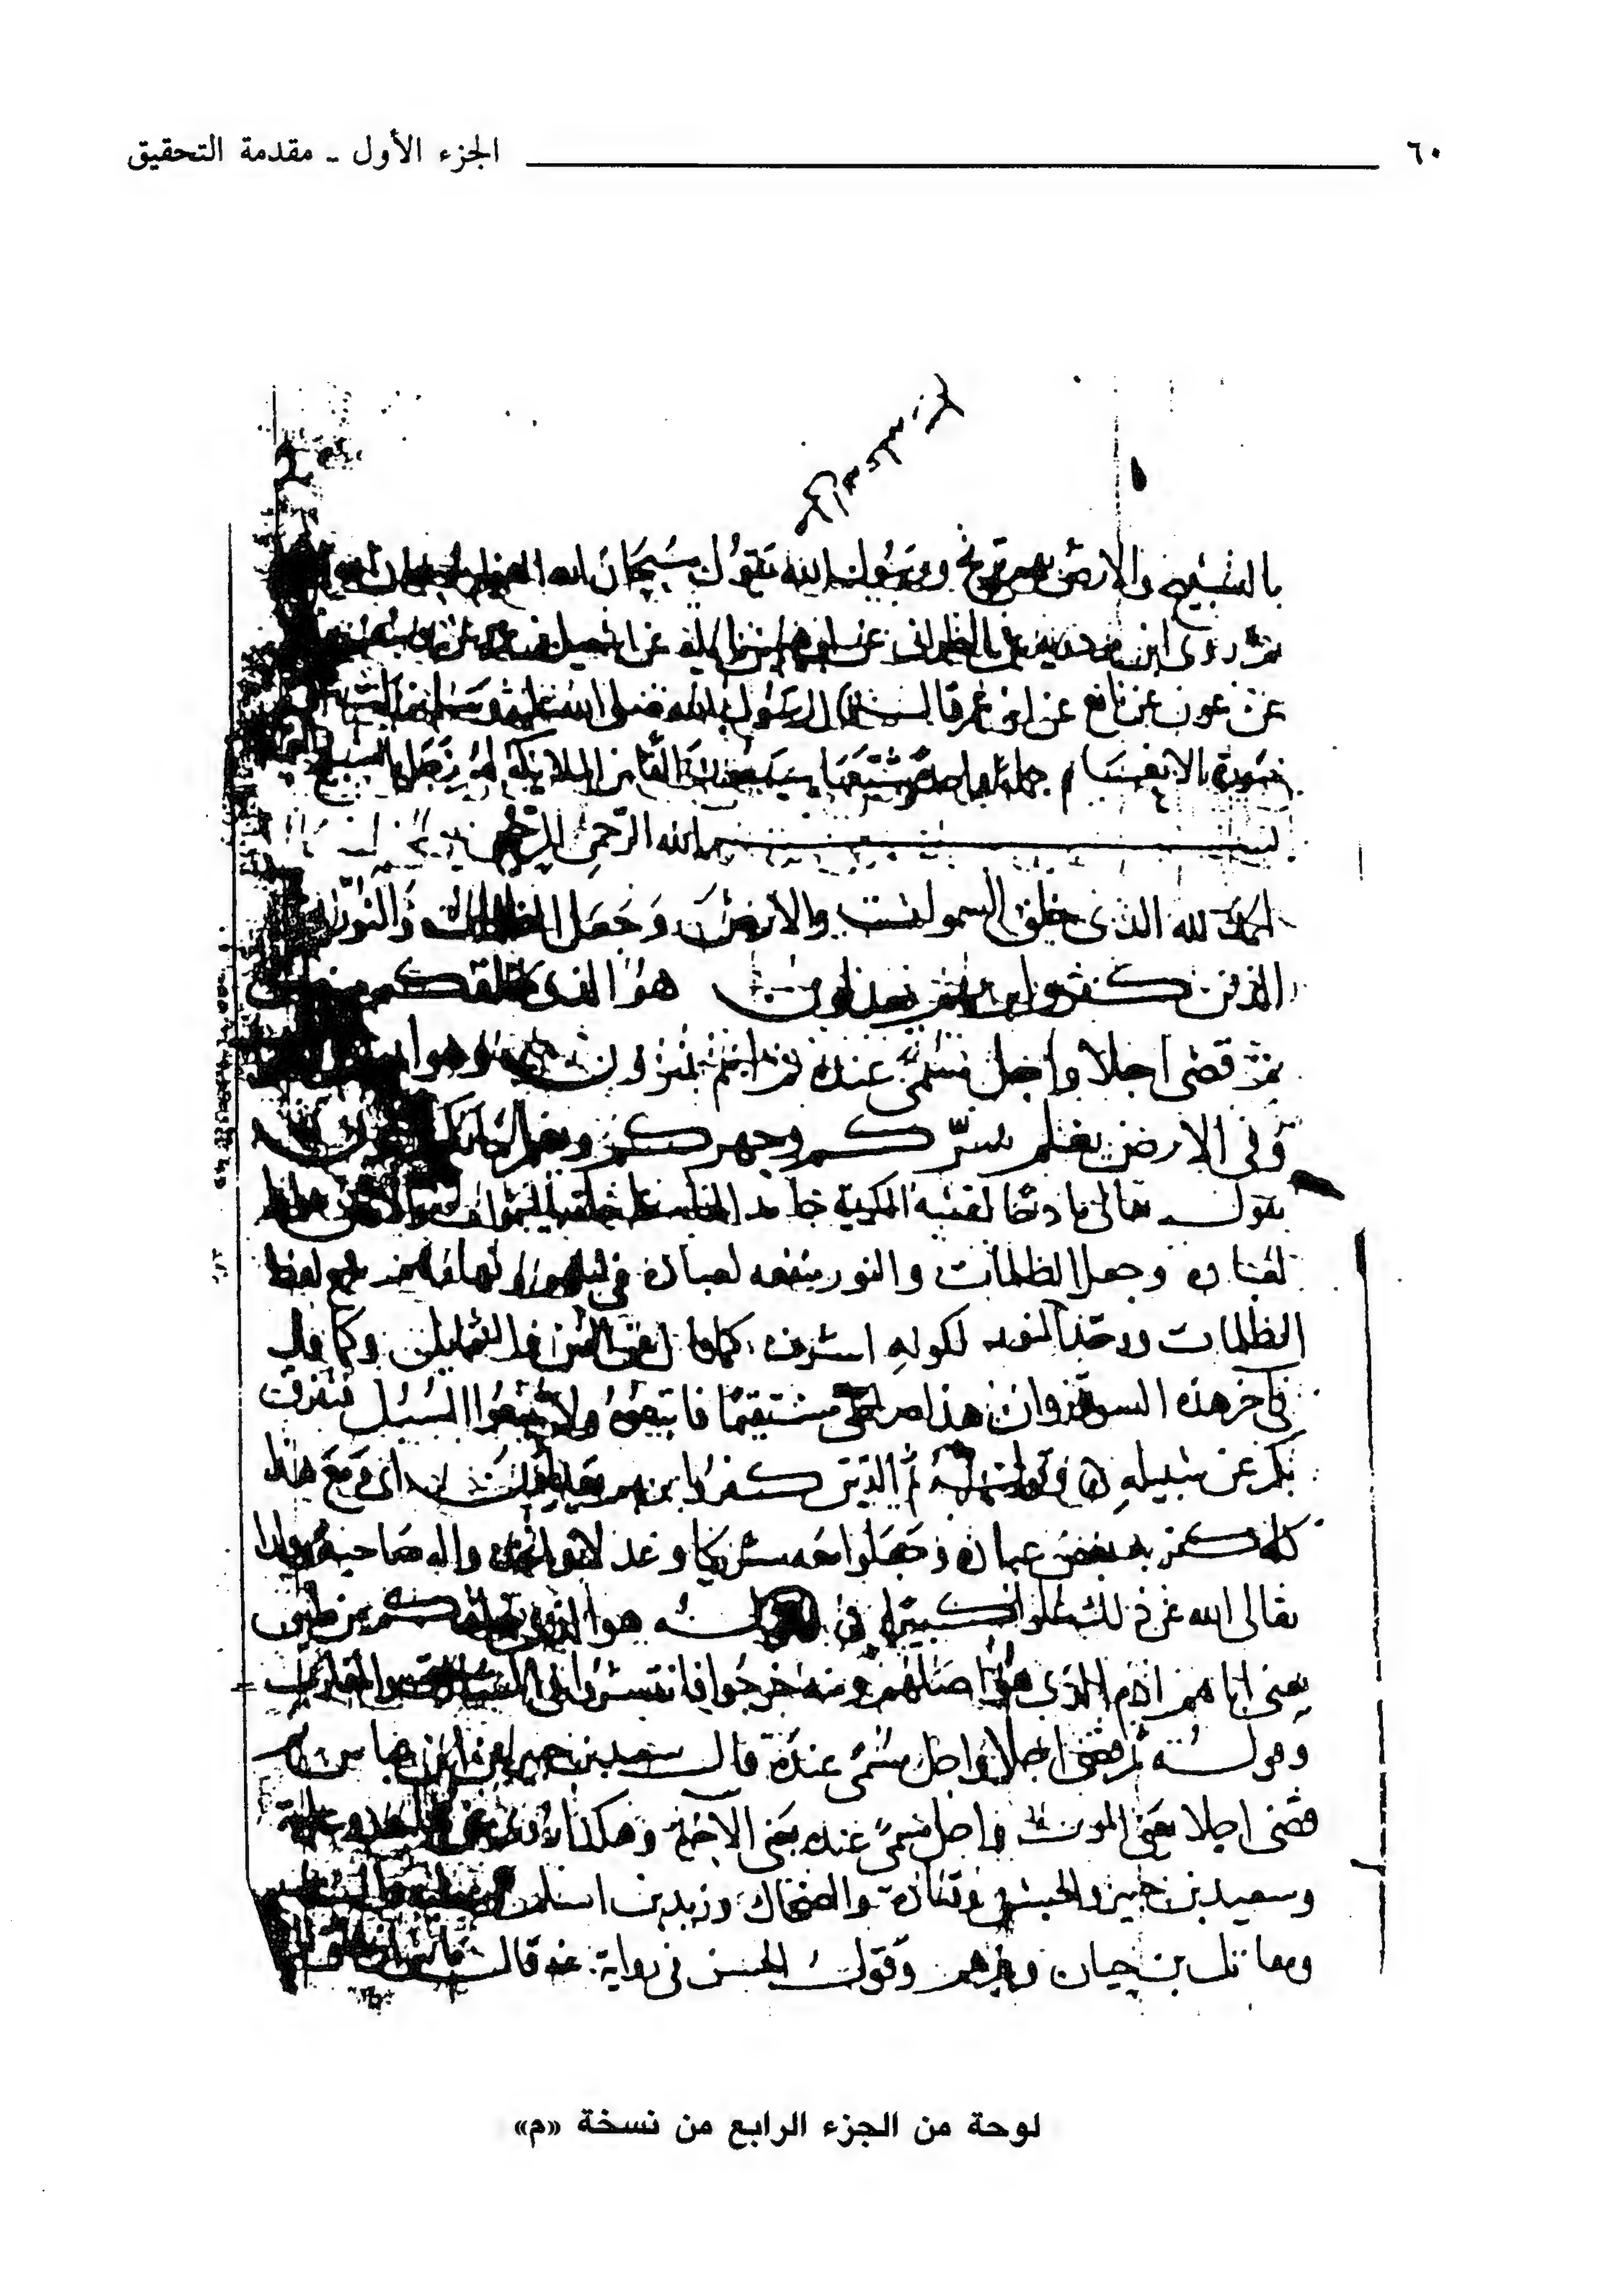 ٦٠ الجزء الأول - مقدمة التحقيق
بالتسبيح والارض بهم ترتج ورسول الله يقول سبحان الله العظيم سبحان الله
ثم روى ابن مردويه عن الطبراني عن ابراهيم بن نايلة عن اسمعيل بن عمرو عن يوسف
عن عون عن نافع عن ابن عمر قال قال رسول الله صلى الله عليه وسلم نزلت
سورة الانعام جملة واحدة شيعها سبعون الفا من الملايكة لهم زجل بالتسبيح
بسم الله الرحمن الرحيم
الحمد لله الذي خلق السموات والارض وجعل الظلمات والنور
الذين كفروا بربهم يعدلون هو الذي خلقكم من
ثم قضى اجلا واجل مسمى عنده ثم انتم تمترون وهو
وفي الارض يعلم سركم وجهركم ويعلم ما
يقول تعالى مادحا لنفسه الكريمة حامدا لها على خلقه السموات والارض
لعباده وجعل الظلمات والنور منفعه لعباده في ليلهم ونهارهم فجمع لفظ
الظلمات ووحد النور لكونه اشرف كما قال عن اليمين والشمايل وكما قال
في اخر هذه السورة وان هذا صراطي مستقيما فاتبعوه ولا تتبعوا السبل فتفرق
بكم عن سبيله وقوله ثم الذين كفروا بربهم يعدلون اي ومع هذا
كله كفر به بعض عباده وجعلوا معه شريكا وعدلا واتخذوا له صاحبة وولدا
تعالى الله عن ذلك علوا كبيرا وقوله هو الذي خلقكم من طين
يعني اباهم ادم الذي هو اصلهم ومنه خرجوا فانتشروا في المشارق والمغارب
وقوله ثم قضى اجلا واجل مسمى عنده قال سعيد بن جبير عن ابن عباس ثم
قضى اجلا يعني الموت واجل مسمى عنده يعني الاخرة وهكذا روي عن مجاهد وعكرمة
وسعيد بن جبير والحسن وقتادة والضحاك وزيد بن اسلم وعطية والسدي
ومقاتل بن حيان وغيرهم وقول الحسن في رواية عنه قال
لوحة من الجزء الرابع من نسخة «م»